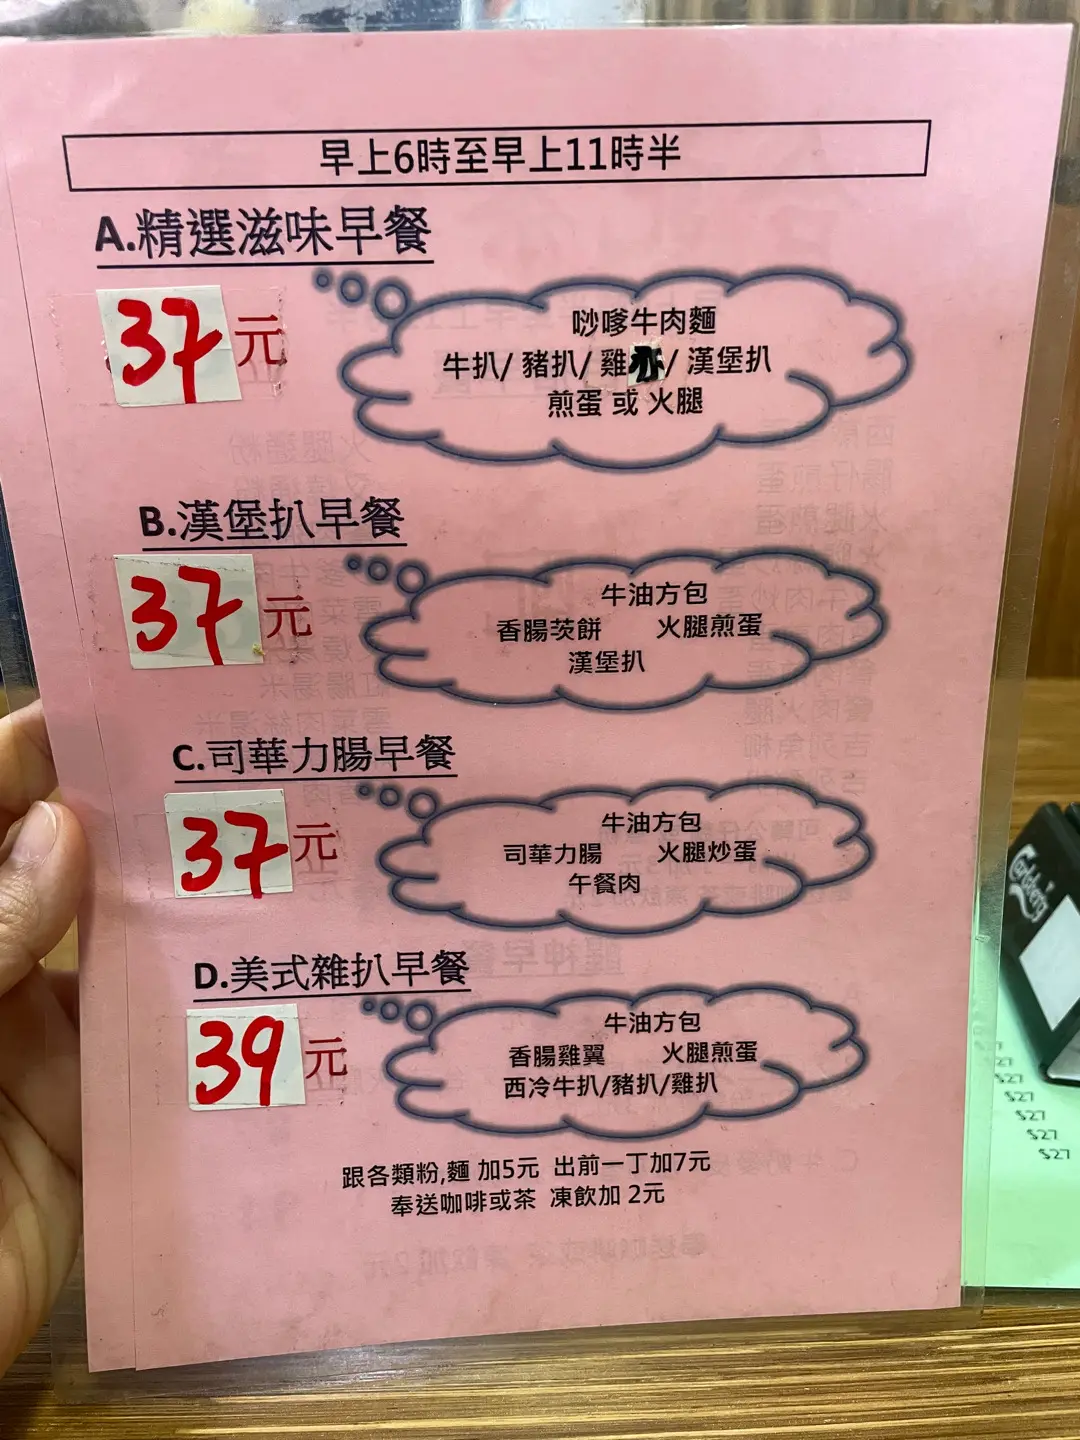 早上6時至早上11時半
A.精選滋味早餐
37元
吵嗲牛肉麵
牛扒/ 豬扒/ 雞亦/ 漢堡扒
煎蛋 或 火腿
B.漢堡扒早餐
37元
牛油方包
香腸茨餅 火腿煎蛋
漢堡扒
C.司華力腸早餐
37元
牛油方包
司華力腸 火腿炒蛋
午餐肉
D.美式雜扒早餐
39元
牛油方包
香腸雞翼 火腿煎蛋
西冷牛扒/豬扒/雞扒
跟各類粉,麵 加5元 出前一丁加7元
奉送咖啡或茶 凍飲加 2元
Carlsberg
$27
$27
$27
$27
$27